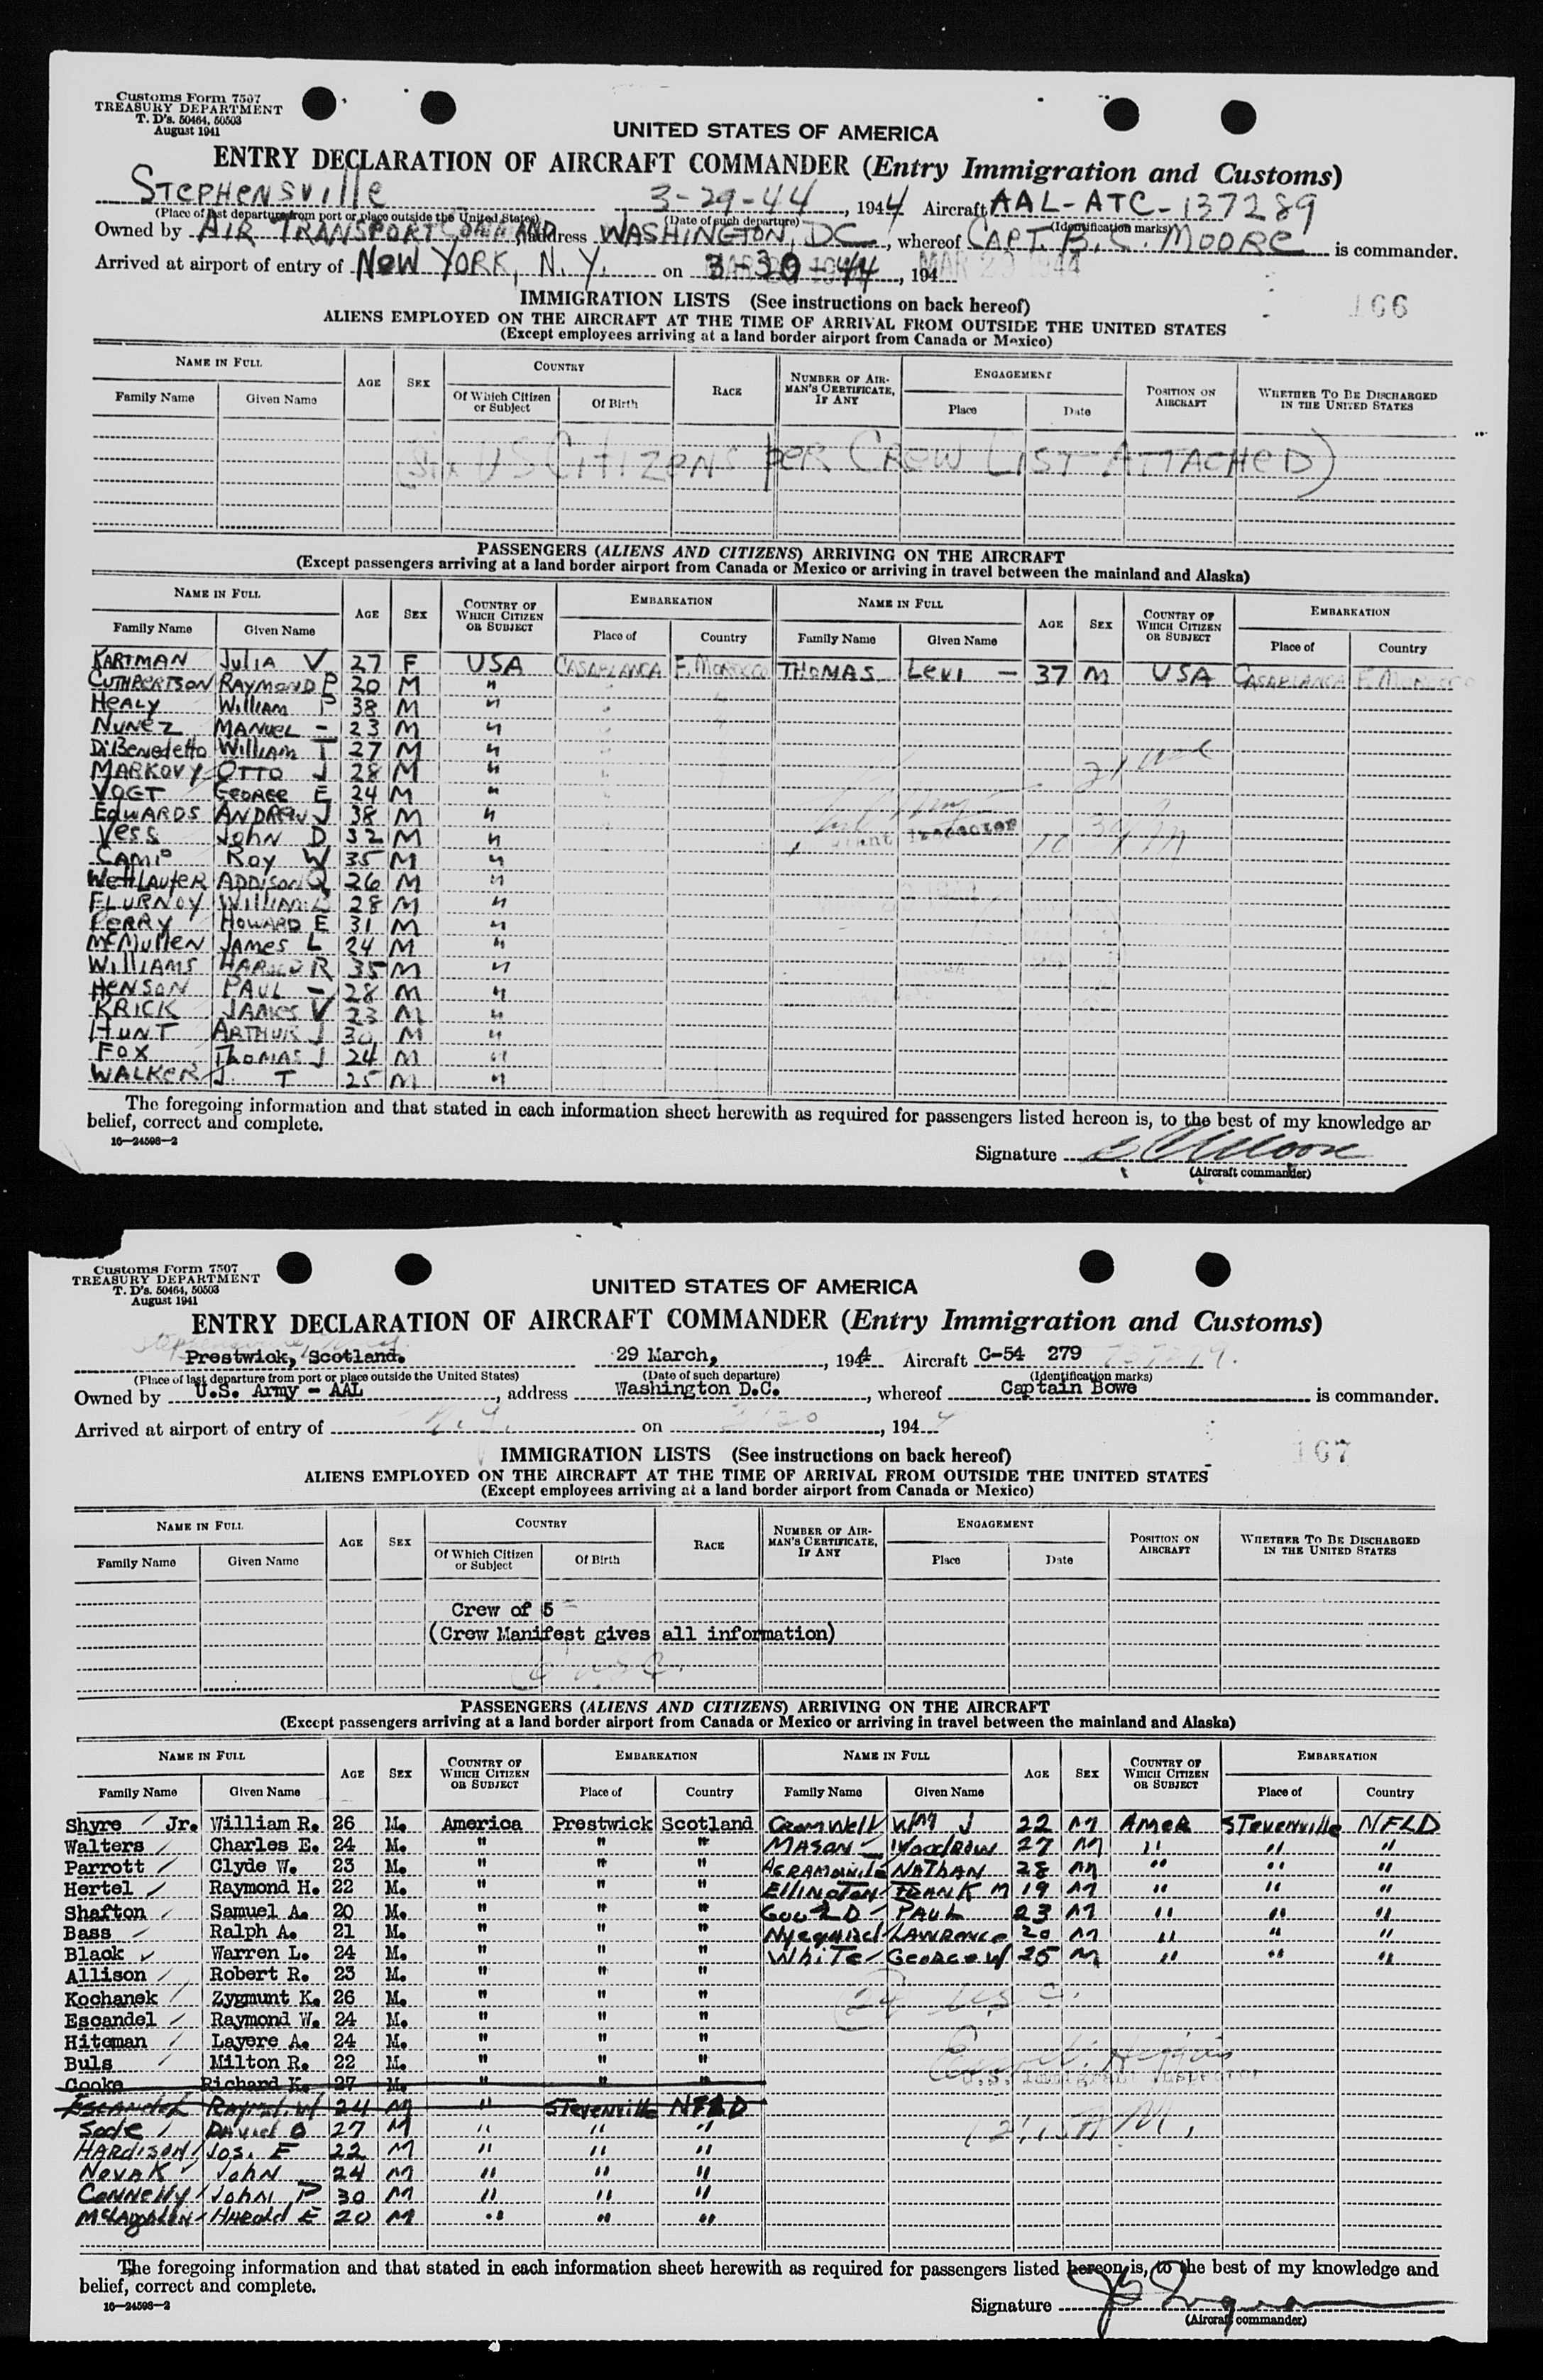 Customs Form 7507
TREASURY DEPARTMENT
T. D's. 50464, 50503
August 1941
UNITED STATES OF AMERICA
ENTRY DECLARATION OF AIRCRAFT COMMANDER (Entry Immigration and Customs)
STEPHENSVILLE 3-29-44, 1944 Aircraft AAL-ATC-137289
(Place of last departure from port or place outside the United States) (Date of such departure) (Identification marks)
Owned by AIR TRANSPORT COMMAND, address WASHINGTON, DC, whereof CAPT. B. C. MOORE is commander.
Arrived at airport of entry of NEW YORK, N. Y. on 3-30-44, 194
166
IMMIGRATION LISTS (See instructions on back hereof)
ALIENS EMPLOYED ON THE AIRCRAFT AT THE TIME OF ARRIVAL FROM OUTSIDE THE UNITED STATES
(Except employees arriving at a land border airport from Canada or Mexico)
NAME IN FULL AGE SEX COUNTRY RACE NUMBER OF AIRMAN'S CERTIFICATE, IF ANY ENGAGEMENT POSITION ON AIRCRAFT WHETHER TO BE DISCHARGED IN THE UNITED STATES
Family Name Given Name Of Which Citizen or Subject Of Birth Place Date
(Six US CITIZENS PER CREW LIST ATTACHED)
PASSENGERS (ALIENS AND CITIZENS) ARRIVING ON THE AIRCRAFT
(Except passengers arriving at a land border airport from Canada or Mexico or arriving in travel between the mainland and Alaska)
NAME IN FULL AGE SEX COUNTRY OF WHICH CITIZEN OR SUBJECT EMBARKATION NAME IN FULL AGE SEX COUNTRY OF WHICH CITIZEN OR SUBJECT EMBARKATION
Family Name Given Name Place of Country Family Name Given Name Place of Country
KARTMAN JULIA V 27 F USA CASABLANCA F. MOROCCO THOMAS LEVI — 37 M USA CASABLANCA F. MOROCCO
CUTHBERTSON RAYMOND P 20 M "
HEALY WILLIAM P 38 M "
NUNEZ MANUEL - 23 M "
DiBenedetto WILLIAM T 27 M "
MARKOVY OTTO J 28 M "
VOGT GEORGE E 24 M "
EDWARDS ANDREW J 38 M "
VESS JOHN D 32 M "
CAMP ROY W 35 M "
WETTLAUFER ADDISON Q 26 M "
FLURNOY WILLIAM 28 M "
PERRY HOWARD E 31 M "
McMULLEN JAMES L 24 M "
WILLIAMS HAROLD R 35 M "
HENSON PAUL — 28 M "
KRICK JAMES V 23 M "
HUNT ARTHUR J 30 M "
FOX THOMAS J 24 M "
WALKER J. T 25 M "
The foregoing information and that stated in each information sheet herewith as required for passengers listed hereon is, to the best of my knowledge ar
belief, correct and complete.
16—24598—2
Signature B C Moore
(Aircraft commander)
Customs Form 7507
TREASURY DEPARTMENT
T. D's. 50464, 50503
August 1941
UNITED STATES OF AMERICA
ENTRY DECLARATION OF AIRCRAFT COMMANDER (Entry Immigration and Customs)
Prestwick, Scotland. 29 March, 1944 Aircraft C-54 279
(Place of last departure from port or place outside the United States) (Date of such departure) (Identification marks)
Owned by U.S. Army - AAL, address Washington D.C., whereof Captain Bowe is commander.
Arrived at airport of entry of N.Y. on 3/30, 1944
167
IMMIGRATION LISTS (See instructions on back hereof)
ALIENS EMPLOYED ON THE AIRCRAFT AT THE TIME OF ARRIVAL FROM OUTSIDE THE UNITED STATES
(Except employees arriving at a land border airport from Canada or Mexico)
NAME IN FULL AGE SEX COUNTRY RACE NUMBER OF AIRMAN'S CERTIFICATE, IF ANY ENGAGEMENT POSITION ON AIRCRAFT WHETHER TO BE DISCHARGED IN THE UNITED STATES
Family Name Given Name Of Which Citizen or Subject Of Birth Place Date
Crew of 5
(Crew Manifest gives all information)
PASSENGERS (ALIENS AND CITIZENS) ARRIVING ON THE AIRCRAFT
(Except passengers arriving at a land border airport from Canada or Mexico or arriving in travel between the mainland and Alaska)
NAME IN FULL AGE SEX COUNTRY OF WHICH CITIZEN OR SUBJECT EMBARKATION NAME IN FULL AGE SEX COUNTRY OF WHICH CITIZEN OR SUBJECT EMBARKATION
Family Name Given Name Place of Country Family Name Given Name Place of Country
Shyre Jr. William R. 26 M. America Prestwick Scotland CROMWELL WM J 22 M AMER STEVENVILLE NFLD
Walters Charles E. 24 M. " " " MASON WOODROW 27 M " " "
Parrott Clyde W. 23 M. " " " AGRAMONTE NATHAN 28 M " " "
Hertel Raymond H. 22 M. " " " ELLINGTON FRANK M 19 M " " "
Shafton Samuel A. 20 M. " " " GOULD PAUL 23 M " " "
Bass Ralph A. 21 M. " " " Nyegaard LAWRENCE 20 M " " "
Black Warren L. 24 M. " " " WHITE GEORGE W 25 M " " "
Allison Robert R. 23 M. " " "
Kochanek Zygmunt K. 26 M. " " "
Escandel Raymond W. 24 M. " " "
Hiteman Layere A. 24 M. " " "
Buls Milton R. 22 M. " " "
Cooke Richard K. 27 M. " " "
ESCANDEL Raymd. W 24 M " STEVENVILLE NFLD
Sode DAVID O 27 M " " "
HARDISON JOS. F 22 M " " "
NOVAK JOHN 24 M " " "
CONNELLY JOHN P 30 M " " "
McLAUGHLIN HAROLD E 20 M " " "
U.S. Immigrant Inspector
The foregoing information and that stated in each information sheet herewith as required for passengers listed hereon is, to the best of my knowledge and
belief, correct and complete.
16—24598—2
Signature
(Aircraft commander)